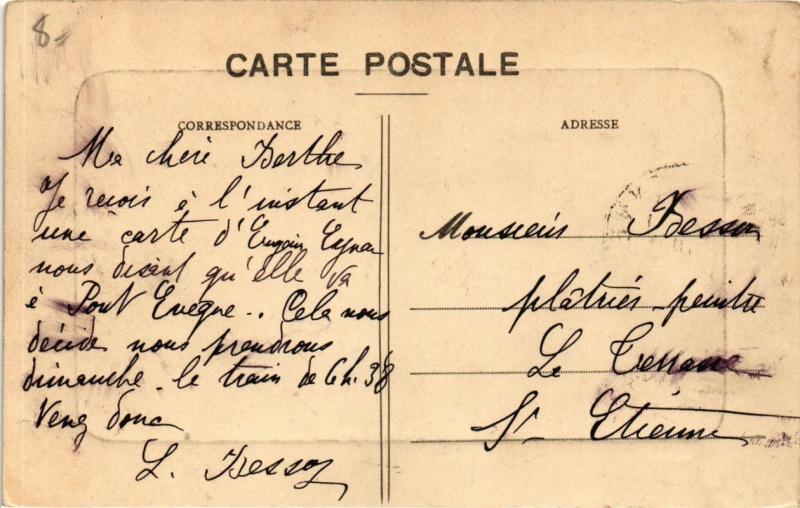 8-
CARTE POSTALE
CORRESPONDANCE
Ma chère Berthe
Je reçois à l'instant
une carte d'
nous disant qu'elle va
à Pont Eveque.. Cela nous
décide nous prendrons
dimanche le train de 6h.38
Venez donc
L. Besson
ADRESSE
Monsieur Besson
plâtrier-peintre
La Terrasse
St Etienne